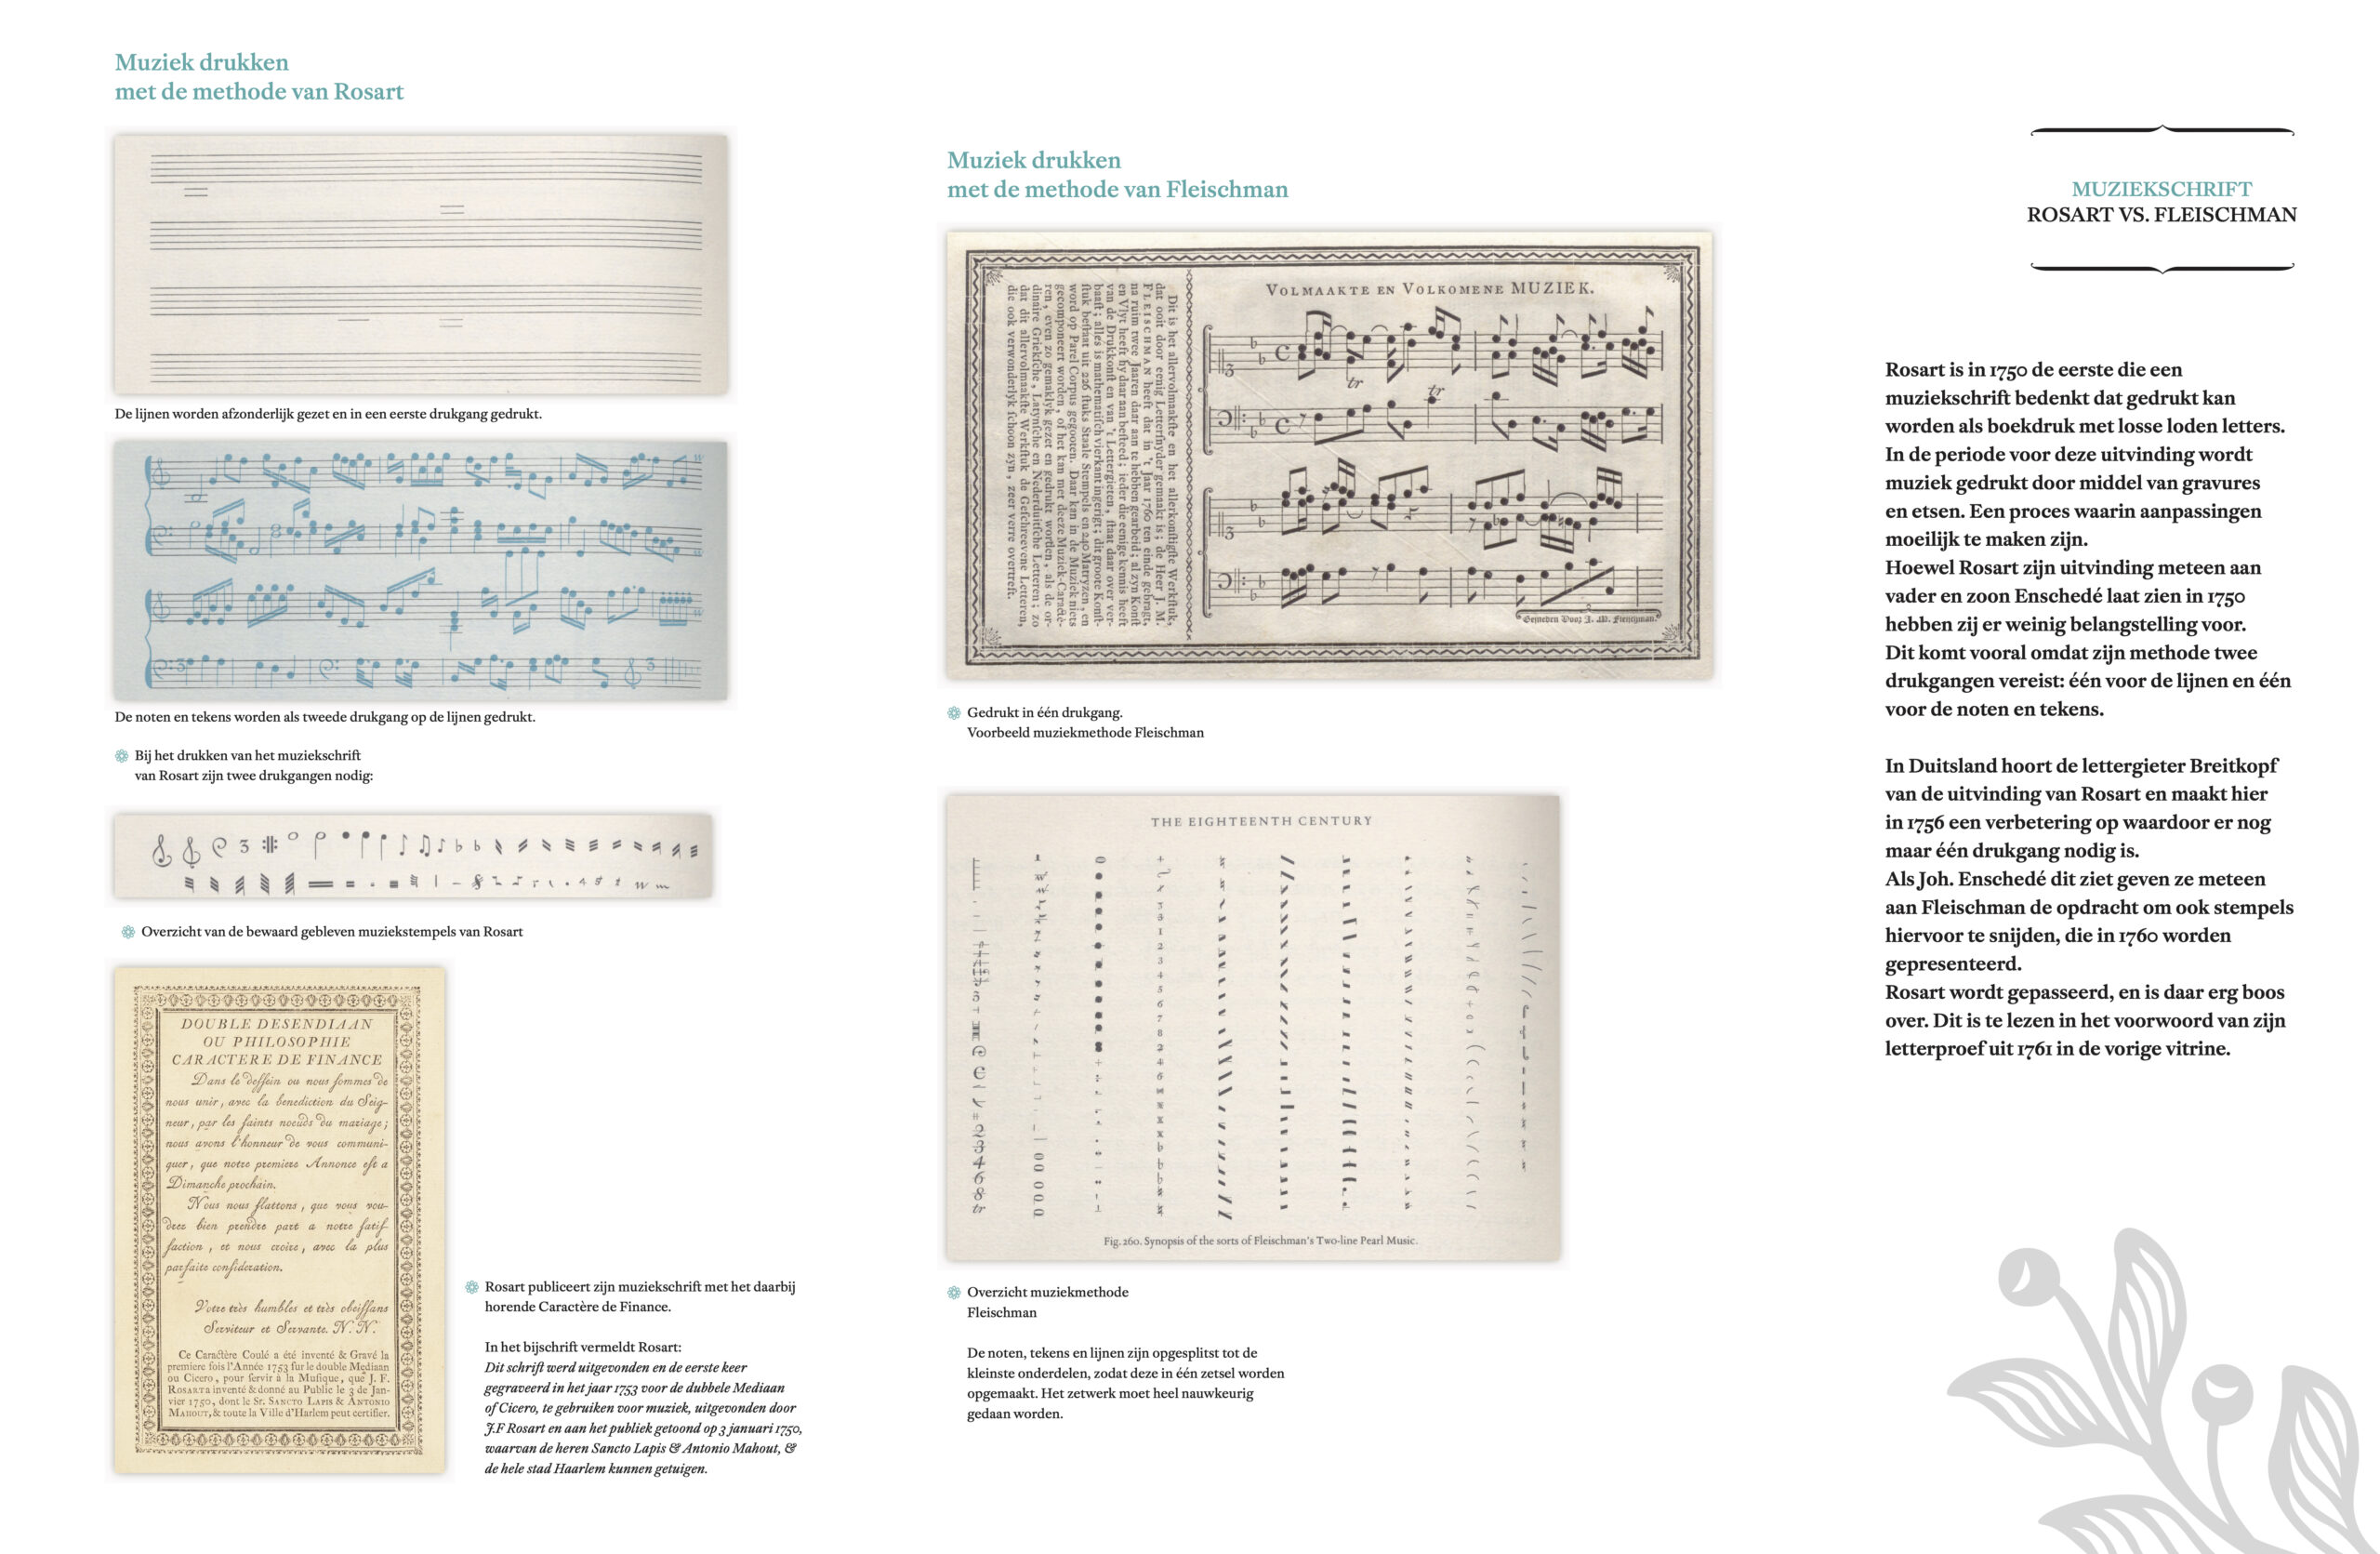 Muziek drukken
met de methode van Rosart
De lijnen worden afzonderlijk gezet en in een eerste drukgang gedrukt.
De noten en tekens worden als tweede drukgang op de lijnen gedrukt.
Bij het drukken van het muziekschrift
van Rosart zijn twee drukgangen nodig:
Overzicht van de bewaard gebleven muziekstempels van Rosart
DOUBLE DESENDIAAN
OU PHILOSOPHIE
CARACTERE DE FINANCE
Dans le deſſein ou nous ſommes de
nous unir, avec la benediction du Seig-
neur, par les ſaints noeuds du mariage;
nous avons l'honneur de vous communi-
quer, que notre premiere Annonce eſt a
Dimanche prochain.
Nous nous flattons, que vous vou-
drez bien prendre part a notre ſatiſ-
faction, et nous croire, avec la plus
parfaite conſideration.
Votre très humbles et très obeiſſans
Serviteur et Servante. N. N.
Ce Caractère Coulé a été inventé & Gravé la
premiere fois l'Année 1753 ſur le double Mediaan
ou Cicero, pour ſervir à la Muſique, que J. F.
ROSART a inventé & donné au Public le 3 de Jan-
vier 1750, dont le Sr. SANCTO LAPIS & ANTONIO
MAHOUT, & toute la Ville d'Harlem peut certifier.
Rosart publiceert zijn muziekschrift met het daarbij
horende Caractère de Finance.
In het bijschrift vermeldt Rosart:
Dit schrift werd uitgevonden en de eerste keer
gegraveerd in het jaar 1753 voor de dubbele Mediaan
of Cicero, te gebruiken voor muziek, uitgevonden door
J.F Rosart en aan het publiek getoond op 3 januari 1750,
waarvan de heren Sancto Lapis & Antonio Mahout, &
de hele stad Haarlem kunnen getuigen.
Muziek drukken
met de methode van Fleischman
VOLMAAKTE EN VOLKOMENE MUZIEK.
tr
tr
Dit is het allervolmaakſte en het allerkonſtigſte Werkſtuk,
dat ooit door eenig Letterſnyder gemaakt is; de Heer J. M.
FLEISCHMAN heeft dat in 't Jaar 1760 ten einde gebragt,
na ruim twee Jaaren daar aan te hebben gearbeid; al zyn Konſt
en Vlyt heeft hy daar aan beſteed; ieder die eenige kennis heeft
van de Drukkonſt en van 't Lettergieten, ſtaat daar over ver-
baaſt; alles is mathematiſch vierkant ingerigt; dit groote Konſt-
ſtuk beſtaat uit 226 ſtuks Staale Stempels en 240 Matryzen, en
word op Parel Corpus gegooten. Daar kan in de Muziek niets
gecomponeert worden, of het kan met deeze Muziek-Caracté-
ren, even zo gemaklyk gezet en gedrukt worden, als de or-
dinaire Griekſche, Latynſche en Nederduitſche Letteren; zo
dat dit allervolmaakſte Werkſtuk de Geſchreevene Letteren,
die ook verwonderlyk ſchoon zyn, zeer verre overtreft.
Gesneden door J. M. Fleischman.
Gedrukt in één drukgang.
Voorbeeld muziekmethode Fleischman
THE EIGHTEENTH CENTURY
Fig. 260. Synopsis of the sorts of Fleischman's Two-line Pearl Music.
Overzicht muziekmethode
Fleischman
De noten, tekens en lijnen zijn opgesplitst tot de
kleinste onderdelen, zodat deze in één zetsel worden
opgemaakt. Het zetwerk moet heel nauwkeurig
gedaan worden.
MUZIEKSCHRIFT
ROSART VS. FLEISCHMAN
Rosart is in 1750 de eerste die een
muziekschrift bedenkt dat gedrukt kan
worden als boekdruk met losse loden letters.
In de periode voor deze uitvinding wordt
muziek gedrukt door middel van gravures
en etsen. Een proces waarin aanpassingen
moeilijk te maken zijn.
Hoewel Rosart zijn uitvinding meteen aan
vader en zoon Enschedé laat zien in 1750
hebben zij er weinig belangstelling voor.
Dit komt vooral omdat zijn methode twee
drukgangen vereist: één voor de lijnen en één
voor de noten en tekens.
In Duitsland hoort de lettergieter Breitkopf
van de uitvinding van Rosart en maakt hier
in 1756 een verbetering op waardoor er nog
maar één drukgang nodig is.
Als Joh. Enschedé dit ziet geven ze meteen
aan Fleischman de opdracht om ook stempels
hiervoor te snijden, die in 1760 worden
gepresenteerd.
Rosart wordt gepasseerd, en is daar erg boos
over. Dit is te lezen in het voorwoord van zijn
letterproef uit 1761 in de vorige vitrine.